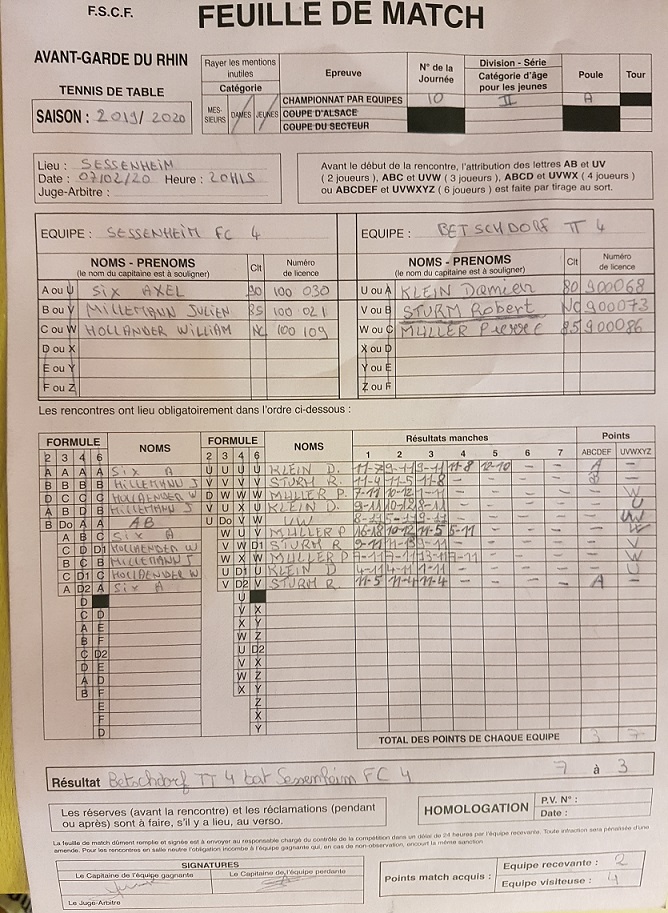 F.S.C.F.
FEUILLE DE MATCH
AVANT-GARDE DU RHIN
TENNIS DE TABLE
SAISON : 2019/2020
Rayer les mentions inutiles
Catégorie
MESSIEURS DAMES JEUNES
Epreuve
N° de la Journée
Division - Série
Catégorie d'âge pour les jeunes
Poule
Tour
CHAMPIONNAT PAR EQUIPES 10 II A
COUPE D'ALSACE
COUPE DU SECTEUR
Lieu : SESSENHEIM
Date : 07/02/20 Heure : 20H15
Juge-Arbitre :
Avant le début de la rencontre, l'attribution des lettres AB et UV
( 2 joueurs ), ABC et UVW ( 3 joueurs ), ABCD et UVWX ( 4 joueurs )
ou ABCDEF et UVWXYZ ( 6 joueurs ) est faite par tirage au sort.
EQUIPE : SESSENHEIM FC 4
NOMS - PRENOMS
(le nom du capitaine est à souligner)
Clt
Numéro de licence
A ou U SIX AXEL 90 100 030
B ou V MILLEMANN JULIEN 85 100 021
C ou W HOLLANDER WILLIAM NC 100 109
D ou X
E ou Y
F ou Z
EQUIPE : BETSCHDORF TT 4
NOMS - PRENOMS
(le nom du capitaine est à souligner)
Clt
Numéro de licence
U ou A KLEIN Damien 80 900068
V ou B STURM Robert NC 900073
W ou C MULLER Pierre 85 900086
X ou D
Y ou E
Z ou F
Les rencontres ont lieu obligatoirement dans l'ordre ci-dessous :
FORMULE NOMS FORMULE NOMS Résultats manches Points
2 3 4 6 2 3 4 6 1 2 3 4 5 6 7 ABCDEF UVWXYZ
A A A A SIX A U U U U KLEIN D. 11-7 9-11 9-11 11-8 12-10 - - A -
B B B B MILLEMANN J V V V V STURM R. 11-4 11-5 11-8 - - - - B -
C C C HOLLAENDER W D W W W MULLER P. 7-11 10-12 - - - - - W
A B D B MILLEMANN J U X U KLEIN D. 9-11 10-12 8-11 - - - - - U
B Do A A AB U Do V W UW - - - - - UW
A B C SIX A W U V MULLER P 16-18 10-12 11-5 5-11 - - - - W
C D D1 HOLLAENDER W V W D1 STURM R 9-11 - - - - - V
B C B MILLEMANN J W X W MULLER P - - - - W
C D1 C HOLLAENDER W U D1 U KLEIN D 4-11 4-11 - - - - - U
A D2 A SIX A V D2 V STURM R. 11-5 11-4 11-4 - - - - A -
D U
C D V X
A E X Y
B F W Z
C D2 U D2
D E V X
A D W Z
B F X Y
E Z
F X
D Y
TOTAL DES POINTS DE CHAQUE EQUIPE 3 7
Résultat Betschdorf TT 4 bat Sessenheim FC 4 7 à 3
Les réserves (avant la rencontre) et les réclamations (pendant
ou après) sont à faire, s'il y a lieu, au verso.
HOMOLOGATION
P.V. N° :
Date :
La feuille de match dûment remplie et signée est à envoyer au responsable chargé du contrôle de la compétition dans un délai de 24 heures par l'équipe recevante. Toute infraction sera pénalisée d'une
amende. Pour les rencontres en salle neutre l'obligation incombe à l'équipe gagnante qui, en cas de non-observation, encourt la même sanction
SIGNATURES
Le Capitaine de l'équipe gagnante
Le Capitaine de l'équipe perdante
Le Juge-Arbitre
Points match acquis :
Equipe recevante : 2
Equipe visiteuse : 4